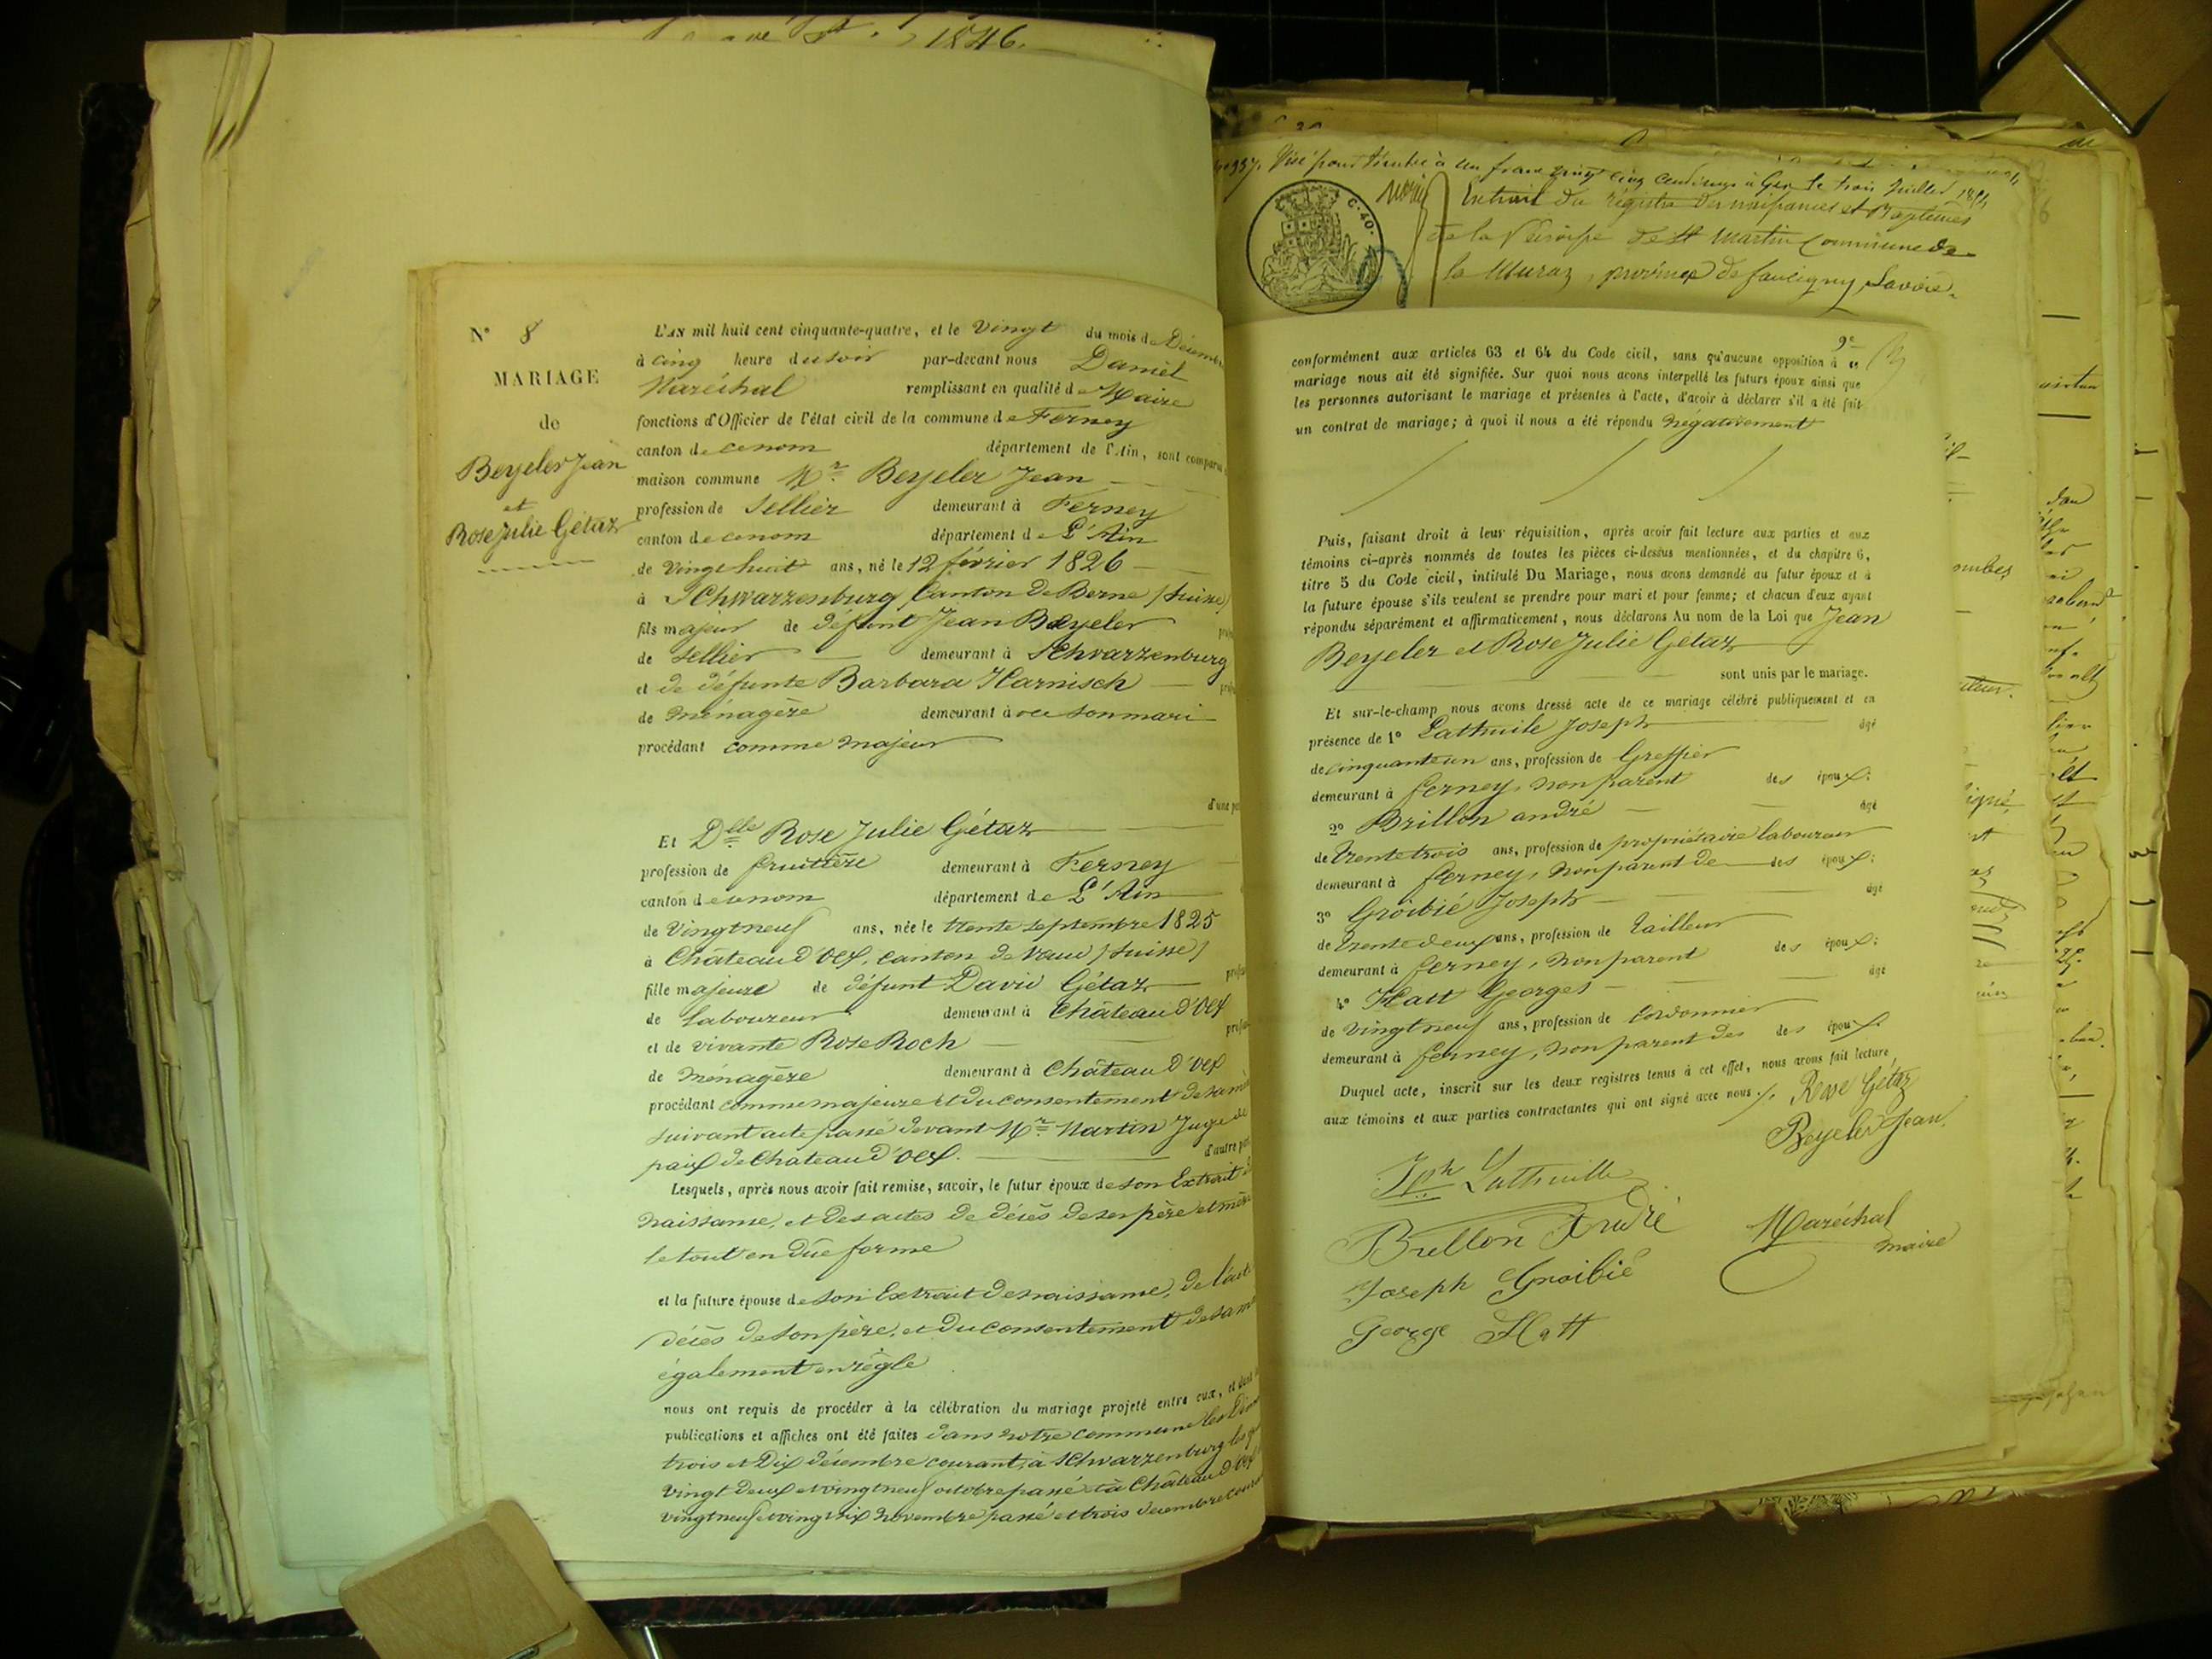 1846.
N° 8
MARIAGE
de
Beyeler Jean
et
Rose Julie Gétaz
L'AN mil huit cent cinquante-quatre, et le vingt du mois de Décembre
à cinq heure du soir par-devant nous Daniel
Maréchal remplissant en qualité de Maire
fonctions d'Officier de l'état civil de la commune de Ferney
canton de ce nom département de l'Ain, sont comparu
maison commune Mr. Beyeler Jean
profession de Sellier demeurant à Ferney
canton de ce nom département de L'Ain
de vingt huit ans, né le 12 février 1826
à Schwarzenburg Canton de Berne (Suisse)
fils majeur de défunt Jean Beyeler
de Sellier demeurant à Schvarzenburg
et de défunte Barbara Harnisch
de ménagère demeurant à son mari
procédant comme majeur
Et Dlle Rose Julie Gétaz
profession de fruitière demeurant à Ferney
canton de ce nom département de L'Ain
de vingt neuf ans, née le trente septembre 1825
à Château d'Oex, canton de Vaud (Suisse)
fille majeure de défunt David Gétaz
de Laboureur demeurant à Château d'Oex
et de vivante Rose Roch
de ménagère demeurant à Château d'Oex
procédant comme majeure et du consentement de sa
suivant acte passé devant Mr. Martin Juge de
paix de Chateau d'Oex. d'autre part
Lesquels, après nous avoir fait remise, savoir, le futur époux de son Extrait de
naissance, et des actes de décès de ses père et mère
le tout en dûe forme
et la future épouse de son Extrait de naissance, de l'acte
décès de son père, et du consentement de sa
également en règle
nous ont requis de procéder à la célébration du mariage projeté entre eux, et dont
publications et affiches ont été faites dans notre commune les
trois et Dix décembre courant, à Schwarzenburg les
vingt deux et vingt neuf octobre passé et à Château d'Oex
vingt neuf vingt six novembre passé et trois décembre courant
Visé pour timbre à un franc vingt cinq centimes à Gex le trois Juillet 1854
C. 40.
Extrait du régistre des naissances et Baptêmes
de la Paroisse de St Martin Commune de
la Muraz, province de faucigny, Savoie.
9e
conformément aux articles 63 et 64 du Code civil, sans qu'aucune opposition à ce
mariage nous ait été signifiée. Sur quoi nous avons interpellé les futurs époux ainsi que
les personnes autorisant le mariage et présentes à l'acte, d'avoir à déclarer s'il a été fait
un contrat de mariage; à quoi il nous a été répondu négativement
Puis, faisant droit à leur réquisition, après avoir fait lecture aux parties et aux
témoins ci-après nommés de toutes les pièces ci-dessus mentionnées, et du chapitre 6,
titre 5 du Code civil, intitulé Du Mariage, nous avons demandé au futur époux et à
la future épouse s'ils veulent se prendre pour mari et pour femme; et chacun d'eux ayant
répondu séparément et affirmativement, nous déclarons Au nom de la Loi que Jean
Beyeler et Rose Julie Gétaz
sont unis par le mariage.
Et sur-le-champ nous avons dressé acte de ce mariage célébré publiquement et en
présence de 1° Lathuile Joseph âgé
de cinquante un ans, profession de Greffier
demeurant à ferney, non parent des époux:
2° Brillon andré âgé
de trente trois ans, profession de propriétaire laboureur
demeurant à ferney, non parent de des époux:
3° Groibié Joseph âgé
de trente deux ans, profession de tailleur
demeurant à ferney, non parent des époux:
4° Hatt Georges âgé
de vingt neuf ans, profession de Cordonnier
demeurant à ferney, non parent des des époux.
Duquel acte, inscrit sur les deux registres tenus à cet effet, nous avons fait lecture
aux témoins et aux parties contractantes qui ont signé avec nous. Rose Gétaz
Beyeler Jean.
Jph Lathuille
Brellon André
Maréchal
maire
Joseph Groibié
George Hatt